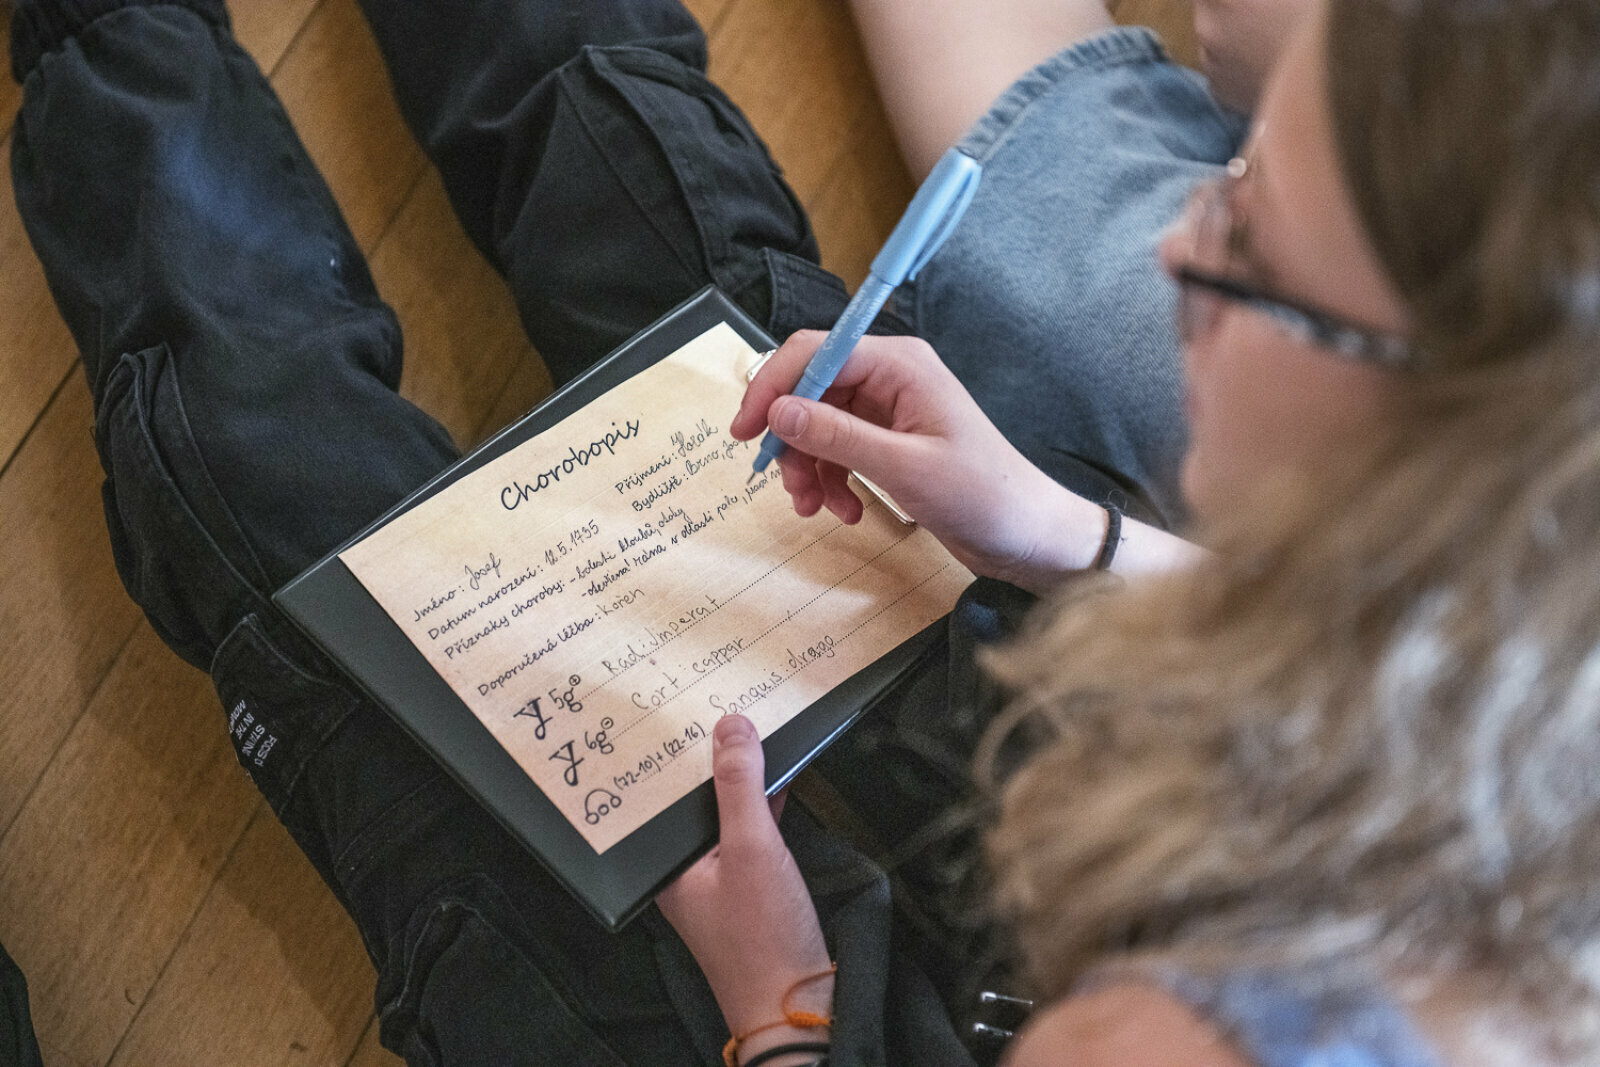 Chorobopis
Jméno: Josef Příjmení: Horák
Datum narození: 12.5.1735 Bydliště: Brno,
Příznaky choroby: - bolesti kloubů,
- otevřená rána v oblasti
Doporučená léčba: Kořen
5g Rad. Imperat
6g Cort. cappar
(72-10)+(22-16) Sanguis drago
IN THE